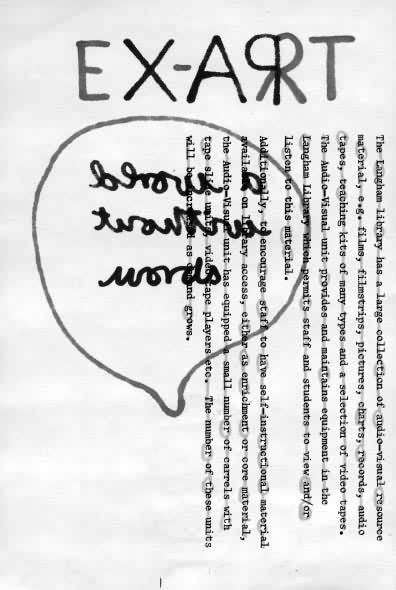 EX-ART
a world
without
The Langham library has a large collection of audio-visual resource
material, e.g. films, filmstrips, pictures, charts, records, audio
tapes, teaching kits of many types and a selection of video tapes.
The Audio-Visual unit provides and maintains equipment in the
Langham Library which permits staff and students to view and/or
listen to this material.
Additionally, to encourage staff to have self-instructional material
available on library access, either as enrichment or core material,
the Audio-Visual unit has equipped a small number of carrels with
tape slide units, video tape players etc. The number of these units
will be increased as demand grows.